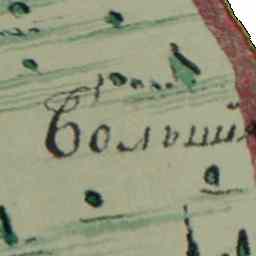 Большй